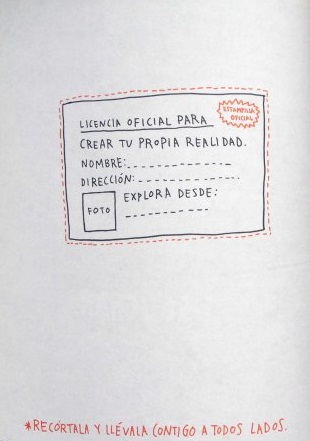 ESTAMPILLA
OFICIAL
LICENCIA OFICIAL PARA
CREAR TU PROPIA REALIDAD.
NOMBRE:
DIRECCIÓN:
FOTO
EXPLORA DESDE:
*RECÓRTALA Y LLÉVALA CONTIGO A TODOS LADOS.